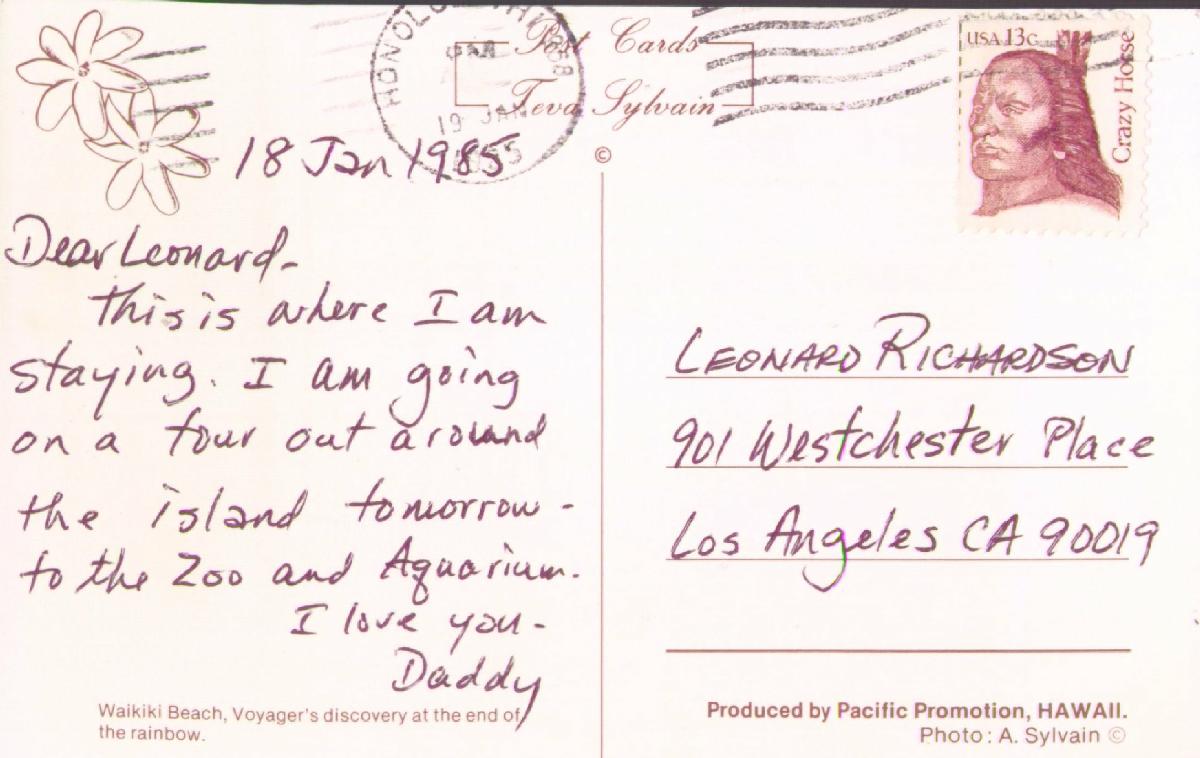 Post Cards
Teva Sylvain
HONOLU
JAN
19 JAN
1985
USA 13c
Crazy Horse
18 Jan 1985
©
Dear Leonard-
This is where I am
staying. I am going
on a tour out around
the island tomorrow -
to the Zoo and Aquarium.
I love you-
Daddy
Waikiki Beach, Voyager's discovery at the end of
the rainbow.
LEONARD RICHARDSON
901 Westchester Place
Los Angeles CA 90019
Produced by Pacific Promotion, HAWAII.
Photo: A. Sylvain ©